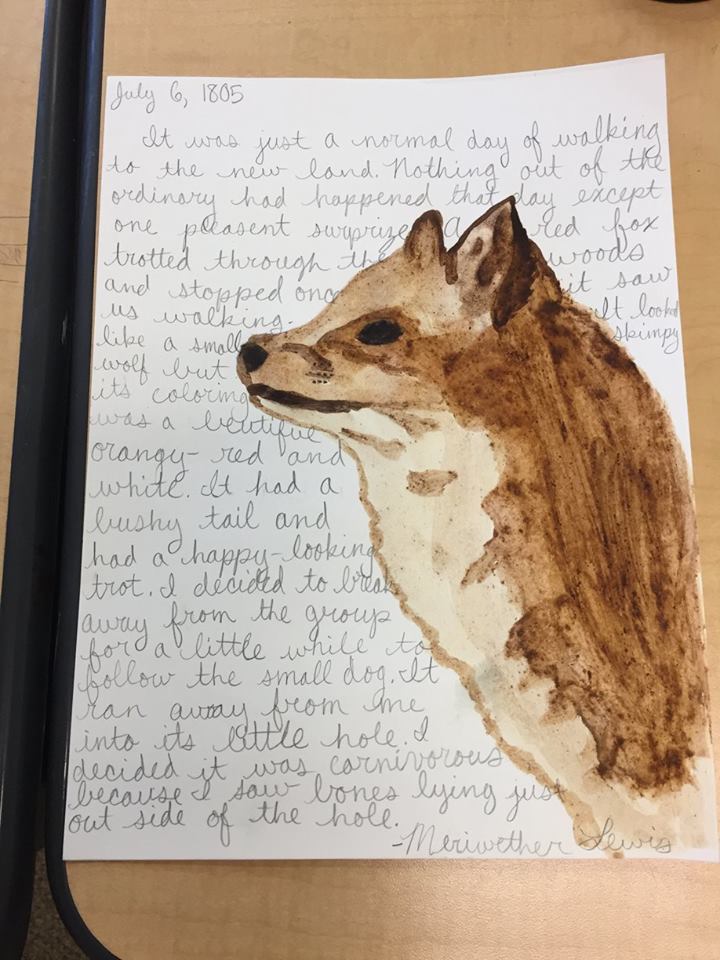 July 6, 1805
It was just a normal day of walking
to the new land. Nothing out of the
ordinary had happened that day except
one pleasent surprize. A red fox
trotted through the woods
and stopped once it saw
us walking. It looked
like a small skimpy
wolf but
its coloring
was a beutiful
orangy-red and
white. It had a
bushy tail and
had a happy-looking
trot. I decided to break
away from the group
for a little while to
follow the small dog. It
ran away from me
into its little hole. I
decided it was carnivorous
because I saw bones lying just
out side of the hole.
-Meriwether Lewis